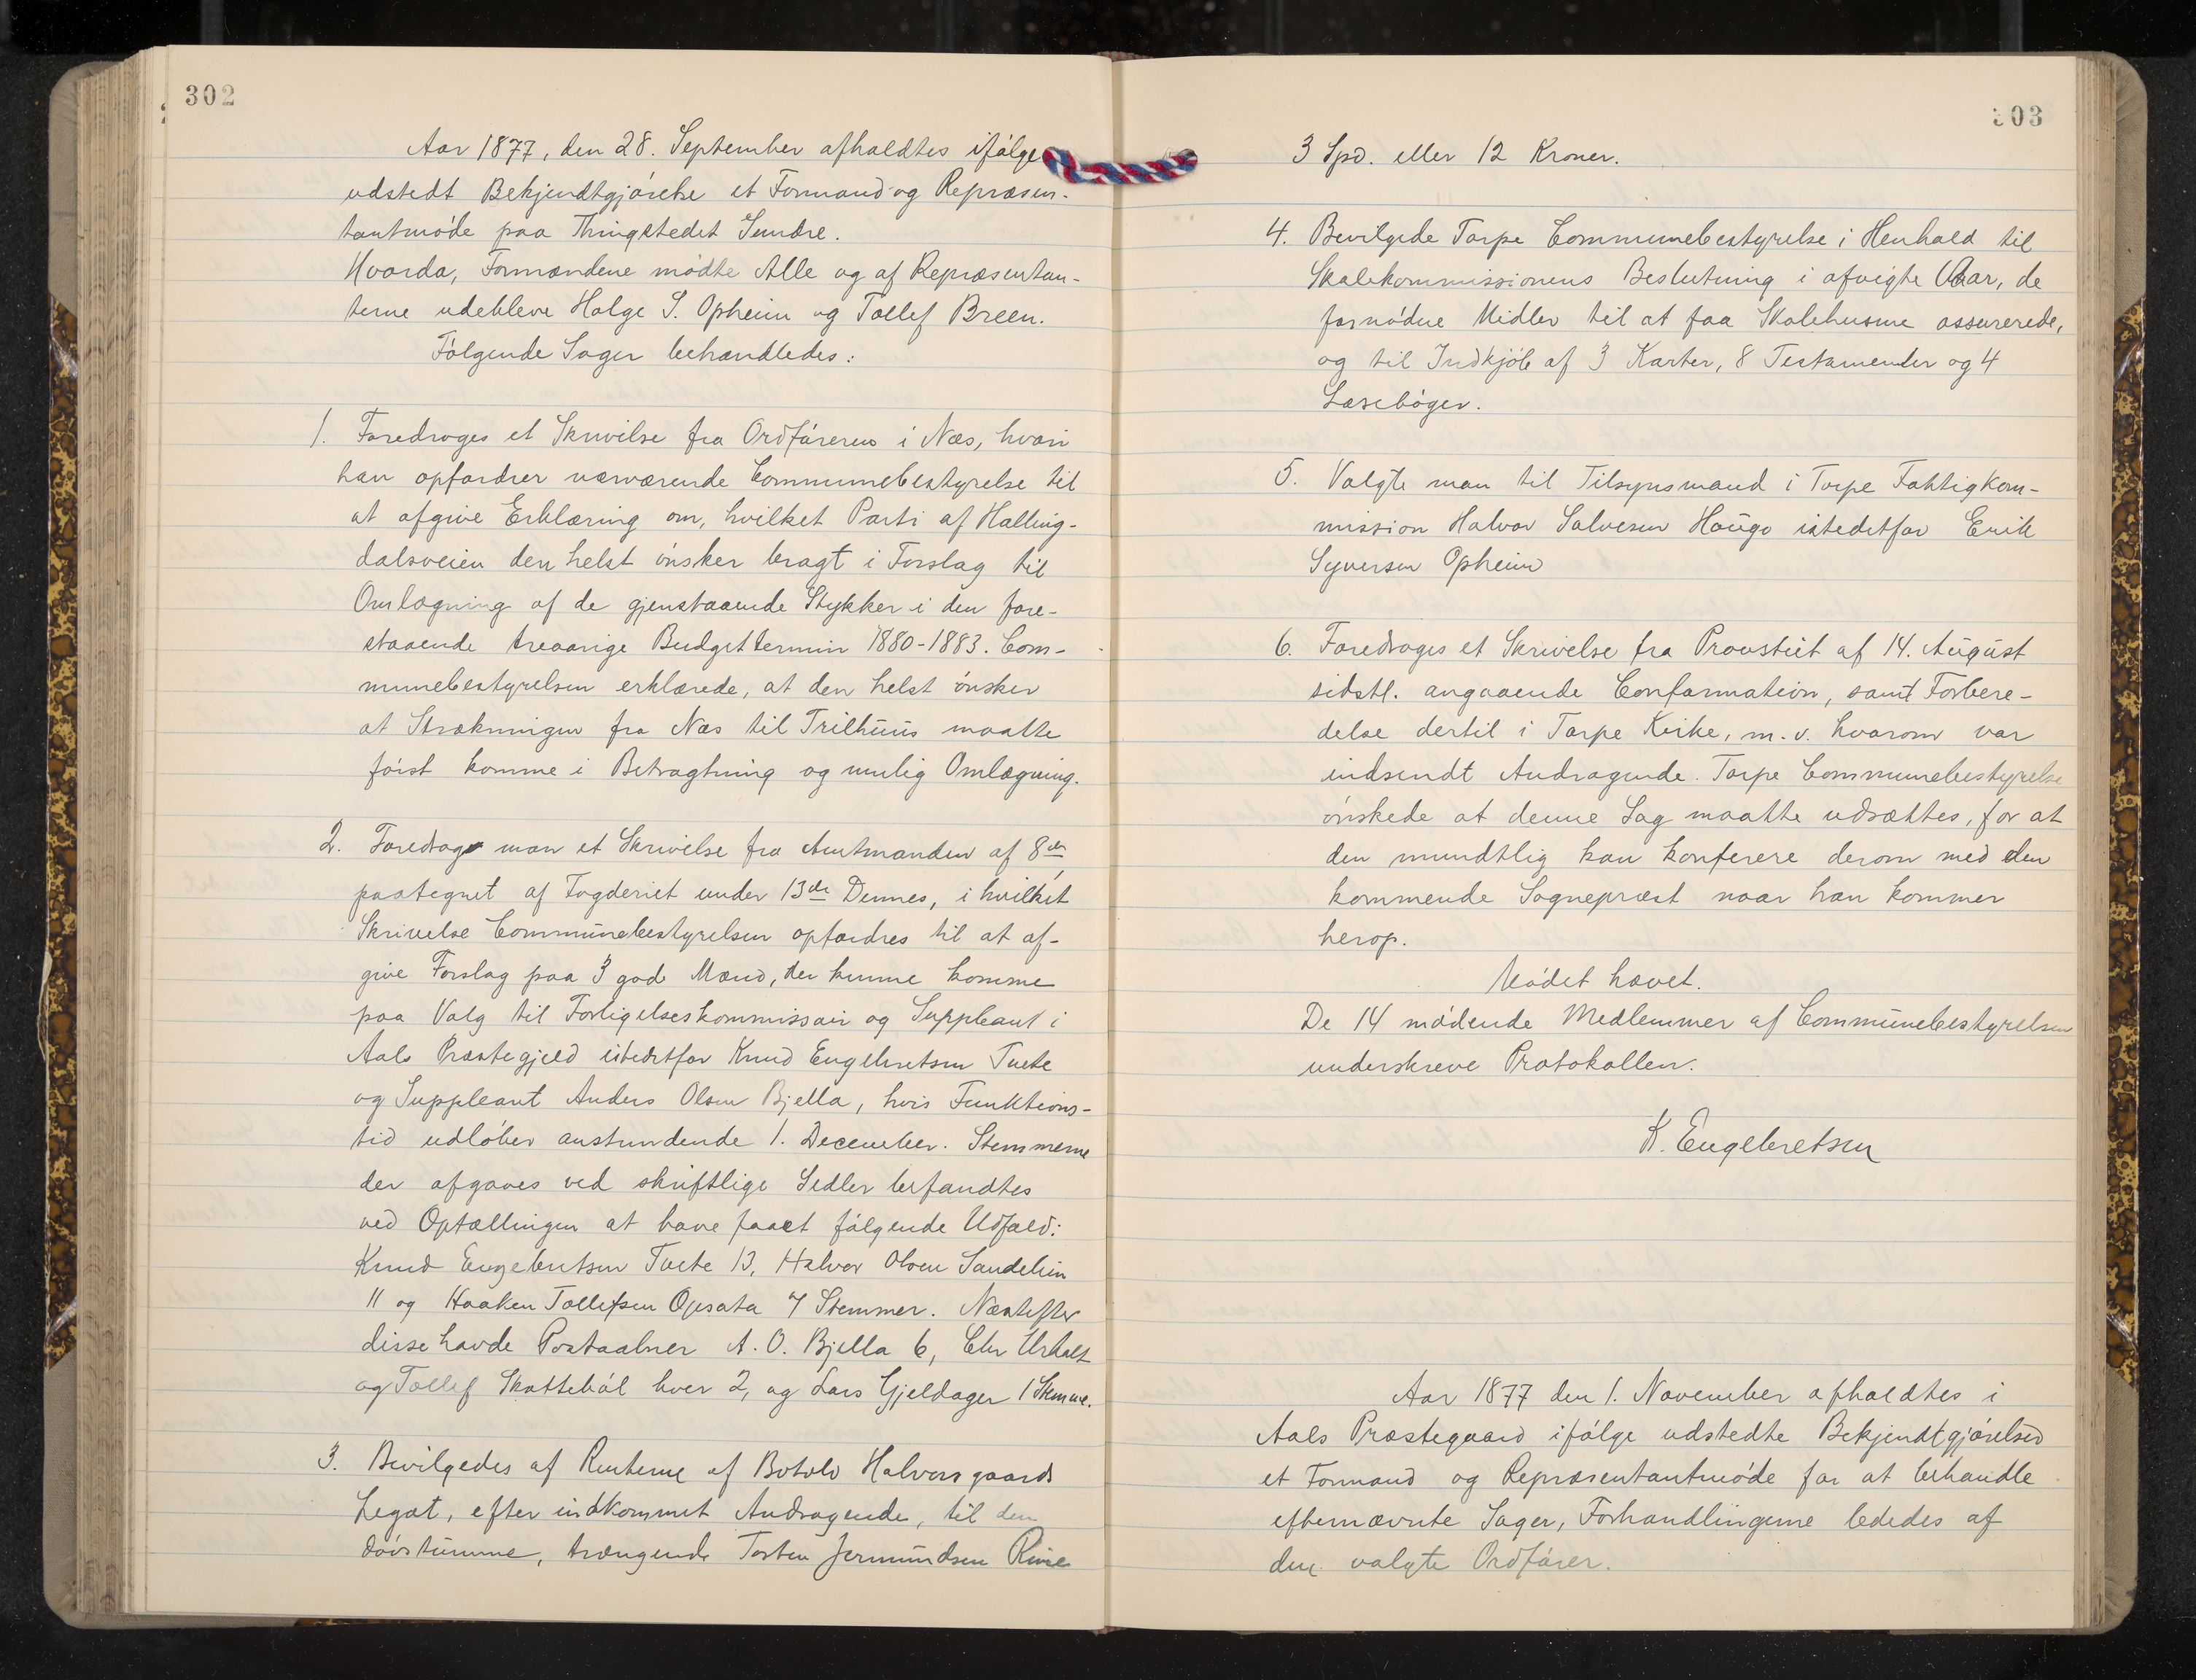 302
Aar 1877, den 28. September afholdtes ifølge
udstedt Bekjendtgjørelse et Formand og Repræsen-
tantmøde paa Thingstedet Sundre.
Hvorda, Formændene mødte Alle og af Repræsentan-
terne udebleve Holge S. Opheim og Tollef Breen.
Følgende Sager behandledes:
1. Foredroges et Skrivelse fra Ordføreren i Næs, hvori
han opfordrer nærværende Communebestyrelse til
at afgive Erklæring om, hvilket Parti af Halling-
dalsveien den helst ønsker bragt i Forslag til
Omlægning af de gjenstaaende Stykker i den fore-
staaende treaarige Budgettermin 1880-1883. Com-
munebestyrelsen erklærede, at den helst ønsker
at Strækningen fra Næs til Trilhuus maatte
først komme i Betragtning og mulig Omlægning.
2. Foredrog man et Skrivelse fra Amtmanden af 8de
paategnet af Fogderiet under 13de Dennes, i hvilket
Skrivelse Communebestyrelsen opfordres til at af-
give Forslag paa 3 god Mænd, der kunne komme
paa Valg til Forligelseskommissair og Suppleant i
Aals Præstegjeld istedetfor Knud Engebretsen Tuete
og Suppleant Anders Olsen Bjella, hvis Funktions-
tid udløber anstundende 1. December. Stemmerne
der afgaves ved skriftlige Sedler befandtes
ved Optællingen at have faaet følgende Udfald:
Knud Engebretsen Tuete 13, Halvor Olsen Sandelien
11 og Haaken Tollefsen Opsata 7 Stemmer. Næstefter
disse havde Postaabner A. O. Bjella 6, Chr Urholt
og Tollef Skottebøl hver 2, og Lars Gjeldager 1 Stemme.
3. Bevilgedes af Renterne af Botolv Halvorsgaards
Legat, efter indkommet Andragende, til den
døvstumme, trængende Torten Jermundsen Rime
303
3 Spd. eller 12 Kroner.
4. Bevilgede Torpe Communebestyrelse i Henhold til
Skolekommissionens Beslutning i afvigte Vaar, de
fornødne Midler til at faa Skolehusene assurerede,
og til Indkjøb af 3 Karter, 8 Testamenter og 4
Læsebøger.
5. Valgte man til Tilsynsmand i Torpe Fattigkom-
mission Halvor Salvesen Haugo istedetfor Erik
Syversen Opheim
6. Foredroges et Skrivelse fra Provstiet af 14. August
sidstl. angaaende Conformation, samt Forbere-
delse dertil i Torpe Kirke, m. v. hvarom var
indsendt Andragende. Torpe Communebestyrelse
ønskede at denne Sag maatte udsættes, for at
den mundtlig kan konferere derom med den
kommende Sognepræst naar han kommer
herop.
Mødet hævet.
De 14 mødende Medlemmer af Communebestyrelsen
underskreve Protokollen.
K. Engebretsen
Aar 1877 den 1. November afholdtes i
Aals Præstegaard ifølge udstedte Bekjendtgjørelse
et Formand og Repræsentantmøde for at behandle
efternævnte Sager, Forhandlingerne lededes af
den valgte Ordfører.